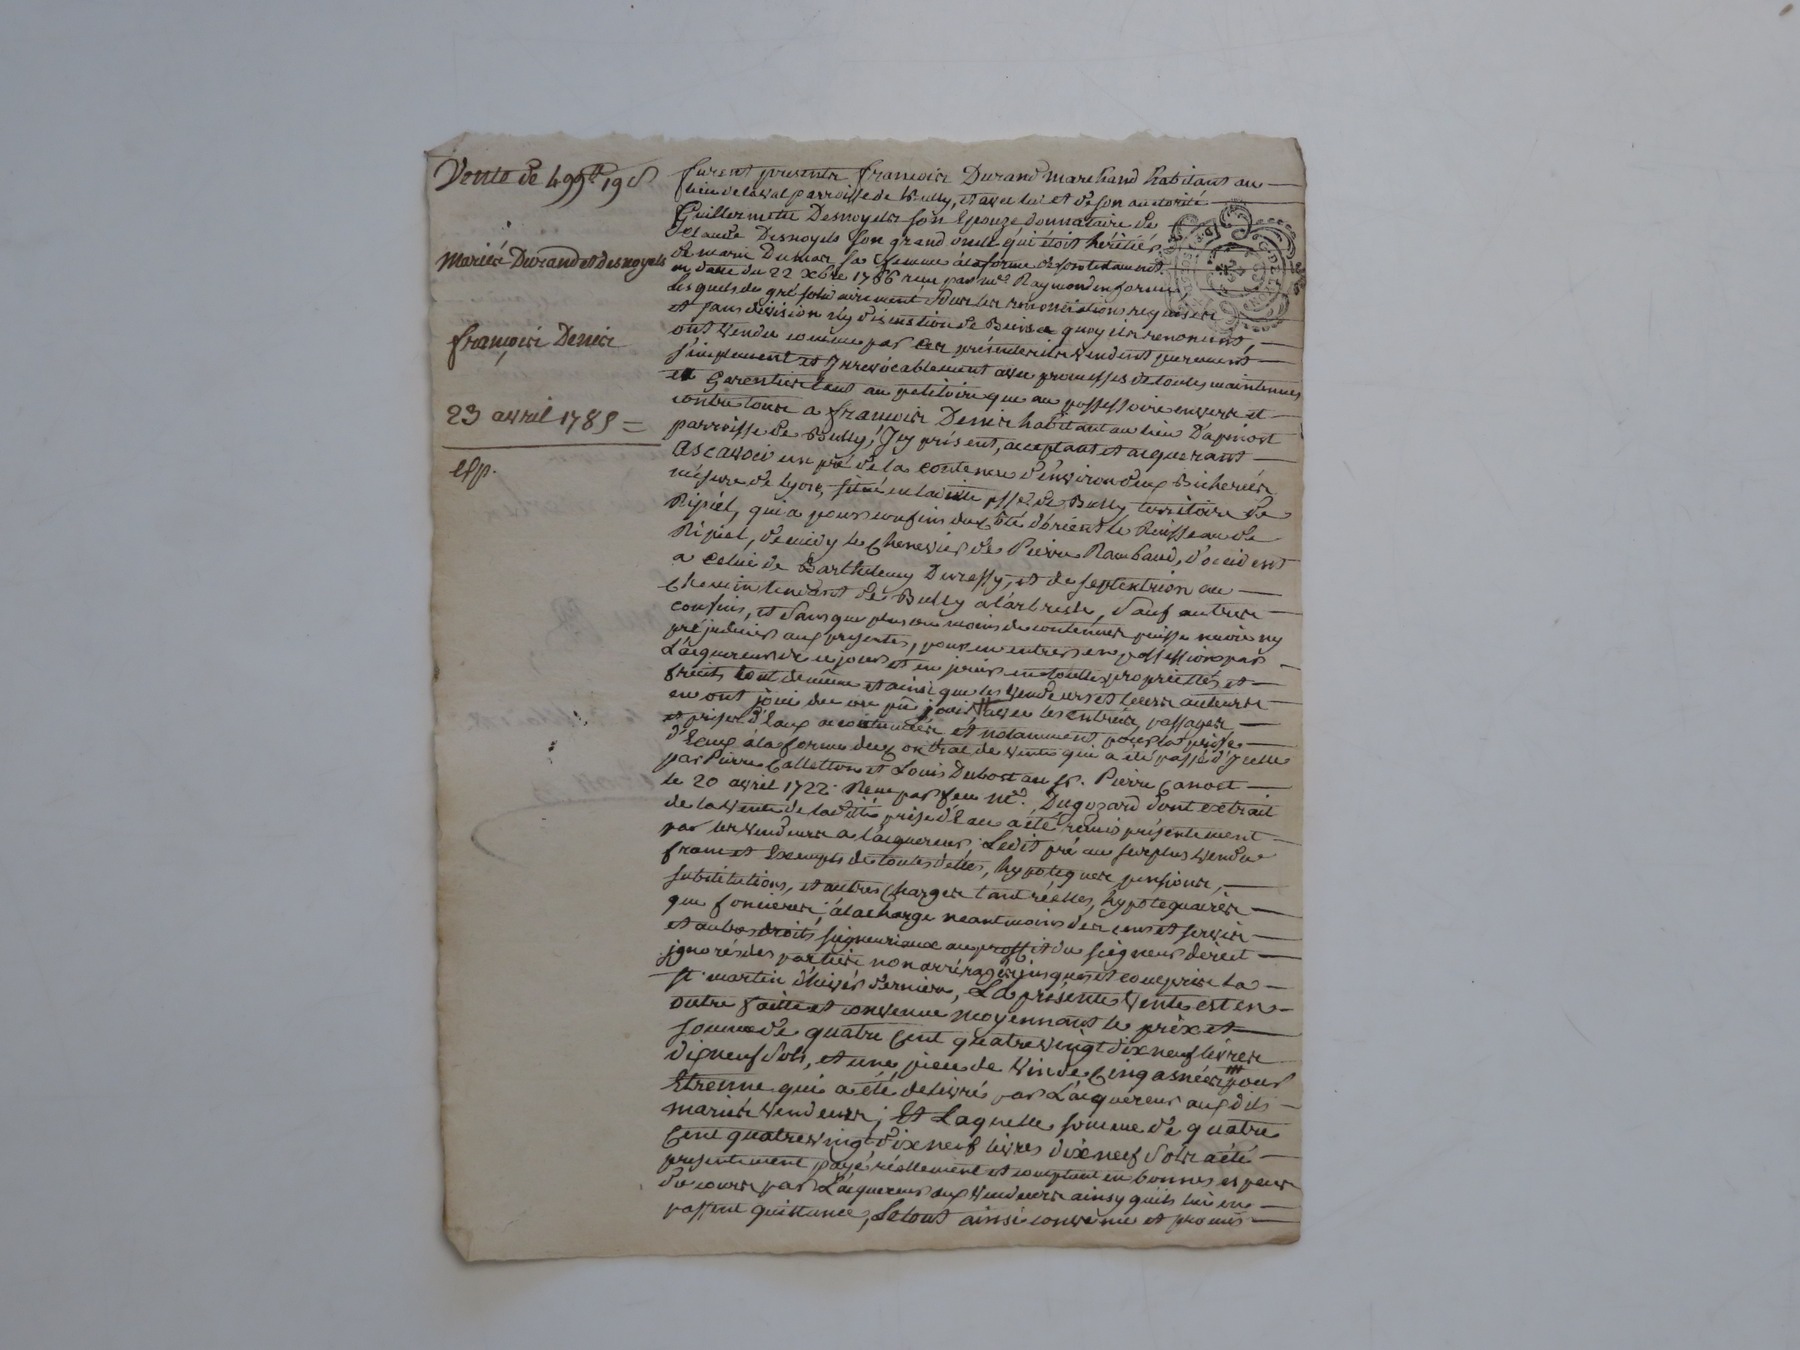 Vente de 499ll 19s
mariés Durand et desnoyels
françois Denis
23 avril 1789 =
Exp.
furent présents françois Durand marchand habitant au
lieu de laval parroisse de Bully, et avec lui et de son autorité
Guillermette Desnoyels son Epouze donnataire de
Claude Desnoyels son grand oncle qui étoit héritier
de marie Dumas sa femme à la forme de son testament
en datte du 22 Xbre 1766 reçu par Me Raymond en forme,
Lesquels de gré solidairement sous les renonciations requises
et sans division n'y discution de Biens a quoy ils renoncent,
ont vendu comme par ces présentes ils vendent purement
simplement et Irrevocablement avec promesses de toutes maintenues
et Garenties tant au petitoire que au possessoire envers et
contre tous a françois Denis habitant au lieu D'apinost
parroisse de Bully, Icy présent, acceptant et acquerant
Ascavoir un pré de la contenue d'environ deux Bicherées
mésure de Lyon, situé en laditte psse de Bully territoire de
Ripiel, qui a pour confins du côté d'orient le Ruisseau de
Ripiel, de midy le Chenevier de Pierre Rambaud, d'occident
a celui de Barthelemy Duressy, et de septentrion au
chemin tendant de Bully a l'arbresle, sauf autres
confins, et sans que plus ou moins de contenues puisse nuire ny
préjudicier aux présentes, pour en entrer en possession par
L'acquereur de ce jour et en jouir en toutes propriettés et
fruits tout de même et ainsi que les vendeurs et leurs auteurs
en ont joui due ou pû jouir # avec les entrées, passages
et prises d'Eaux accoutumées et notamment pour la prise
d'Eaux à la forme du Contrat de vente qui a été passé d'Icelle
par Pierre Calletton et Louis Dubost au Sr. Pierre Canost
le 20 avril 1722 Reçu par feu Me. Dugozard dont extrait
de la vente de laditte prise d'Eau a été remis présentement
par les vendeurs a l'acquereur; Ledit pré au surplus vendu
franc et Exempt de toutes dettes, hypoteques pensions,
substitutions, et autres Charges tant réelles, hypotequaires
que foncieres; à la charge néantmoins des cens et servis
et autres droits seigneuriaux au proffit du seigneur direct
ignorés des parties non arréragés jusques et compris la
St. martin d'hiver derniere, La présente vente est en
outre faitte et convenue moyennant le prix et
somme de quatre Cent quatre vingt dix neuf livres
dix neuf sols, et une piece de vin de Cinq asnées # pour
Etrenne qui a été délivré par L'acquereur aux dits
mariés vendeurs; Et Laquelle somme de quatre
Cent quatre vingt dix neuf livres dix neuf sols a été
présentement payé réellement et comptant en bonnes especes
du cours par L'acquereur aux vendeurs ainsy qu'ils lui en
passent quittance, Le tout ainsi convenu et promis